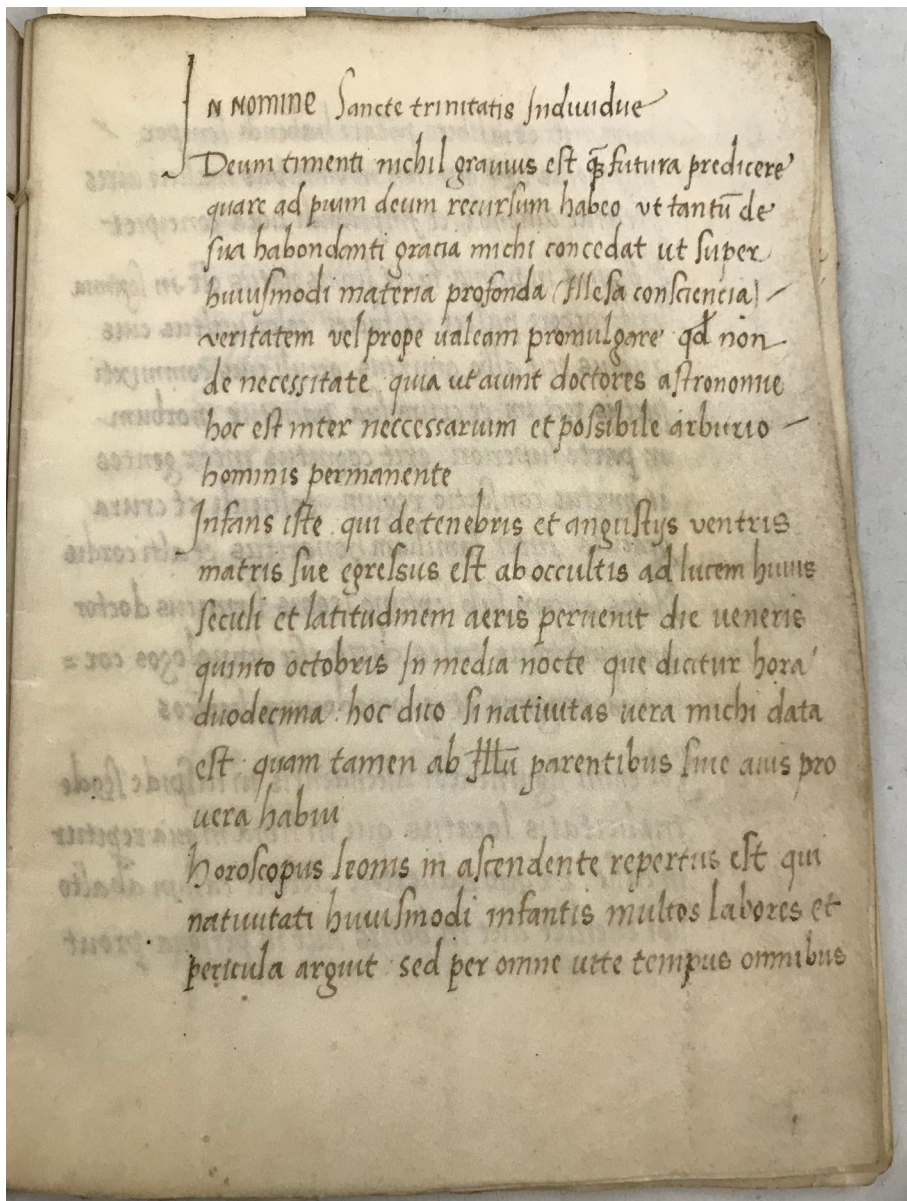 IN NOMINE Sancte trinitatis Indiuidue
Deum timenti nichil grauius est qȝ futura predicere
quare ad pium deum recursum habeo vt tantū de
sua habondanti gracia michi concedat ut super
huiusmodi materia profonda (Illesa consciencia)
veritatem vel prope ualeam promulgare qd non
de necessitate quia ut aiunt doctores astronomie
hoc est inter neccessarium et possibile arbitrio
hominis permanente
Infans iste qui de tenebris et angustijs ventris
matris sue egressus est ab occultis ad lucem huius
seculi et latitudinem aeris peruenit die veneris
quinto octobris In media nocte que dicitur hora
duodecima hoc dico si natiuitas uera michi data
est quam tamen ab parentibus siue auis pro
uera habui
Horoscopus leonis in ascendente repertus est qui
natiuitati huiusmodi infantis multos labores et
pericula arguit sed per omne uite tempus omnibus